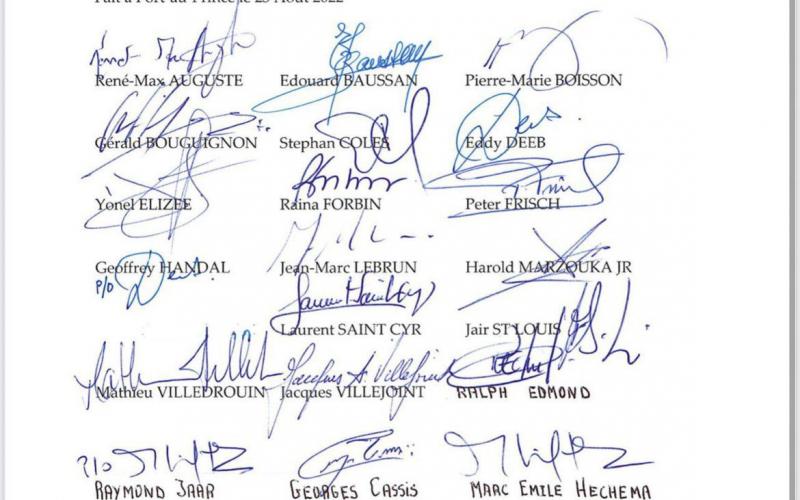 Fait à Port-au-Prince le 25 Août 2022
René-Max AUGUSTE Edouard BAUSSAN Pierre-Marie BOISSON
Gérald BOUGUIGNON Stephan COLES Eddy DEEB
Yonel ELIZEE Raina FORBIN Peter FRISCH
Geoffrey HANDAL Jean-Marc LEBRUN Harold MARZOUKA JR
P/O
Laurent SAINT CYR Jair ST LOUIS
Mathieu VILLEDROUIN Jacques VILLEJOINT RALPH EDMOND
P/O
RAYMOND JAAR GEORGES CASSIS MARC EMILE HECHEMA